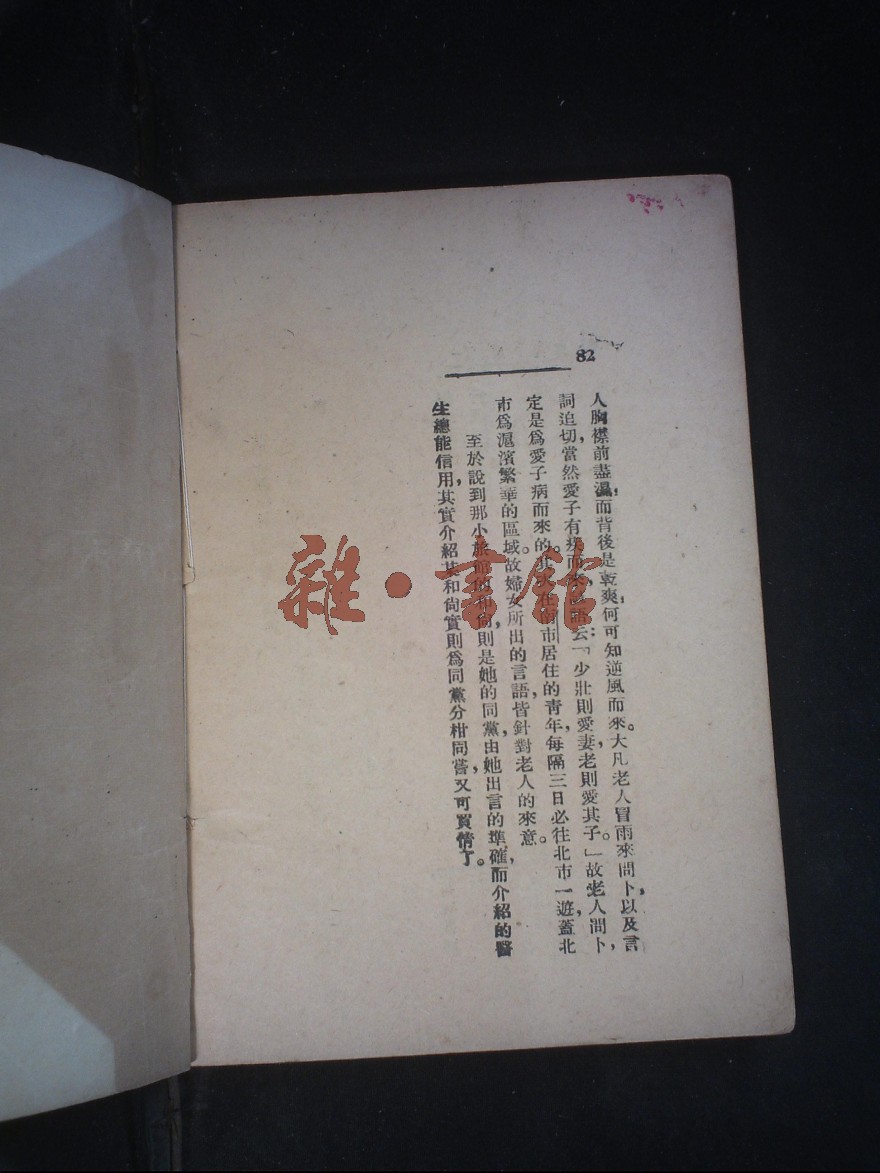 82
人胸襟前盡濕，而背後是乾爽，何可知逆風而來。大凡老人冒雨來問卜，以及言
詞追切，當然愛子有疾而來，語云：「少壯則愛妻，老則愛其子。」故老人問卜，
定是爲愛子病而來的。其次在南市居住的青年，每隔三日必往北市一遊，蓋北
市爲滬濱繁華的區域，故婦女所出的言語，皆針對老人的來意。
至於說到那小旅館的和尙，則是她的同黨，由她出言的準確，而介紹的醫
生總能信用，其實介紹某和尙，實則爲同黨分柑同嘗，又可買情了。
雜·書館